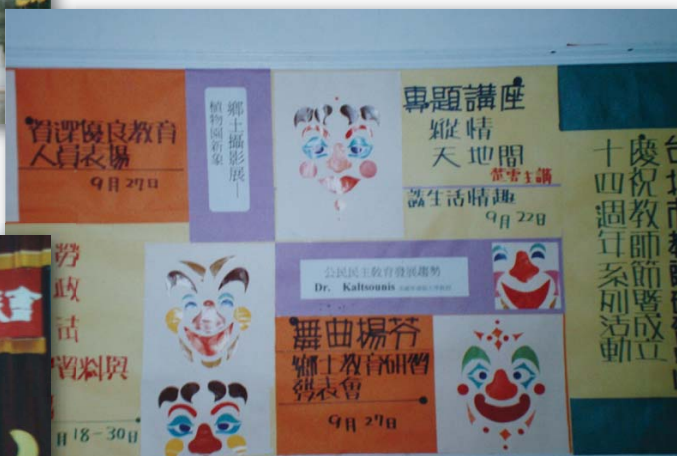 資深優良教育
人員表揚
9月27日
鄉土攝影展—
植物園新象
專題講座
縱情
天地間
楚雲主講
談生活情趣
9月22日
慶祝教師節暨成立
十四週年系列活動
勞
政
資料與
月18-30日
公民民主教育發展趨勢
Dr. Kaltsounis
舞曲揚芬
鄉土教育研習
發表會
9月27日
會